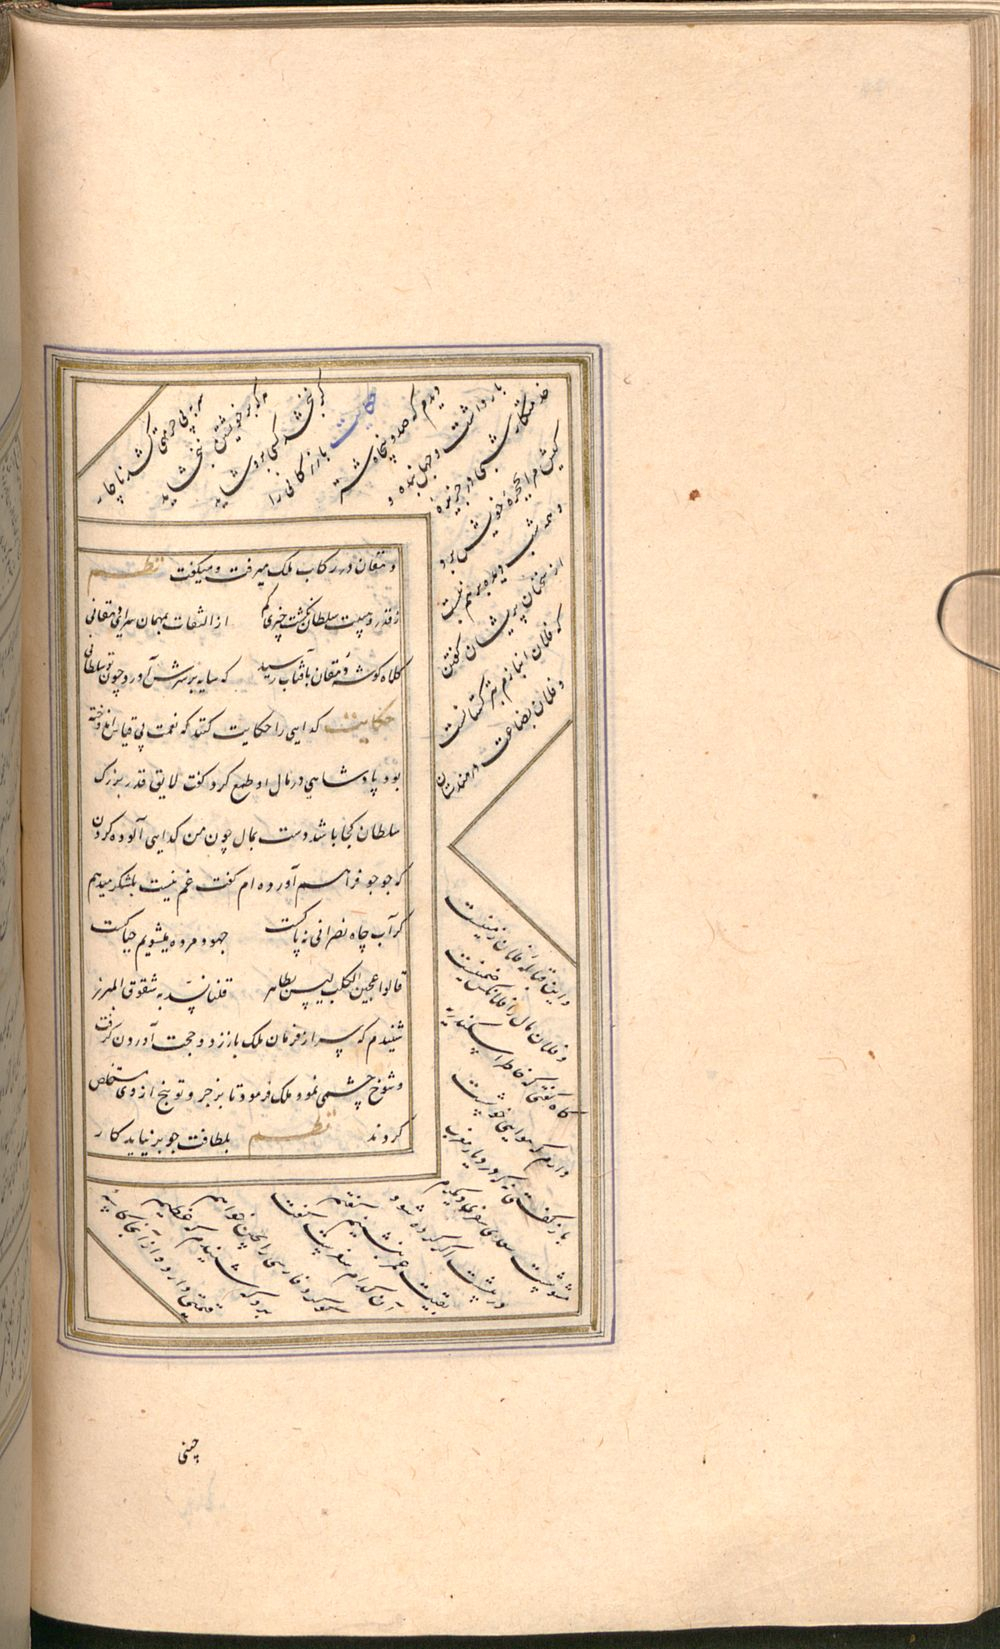 دهقان در رکاب ملک میرفت و میگفت نظم
ز قدر و شوکت سلطان نگشت چیزی کم از التفات بمهمان سرای دهقانی
کلاه کوشه دهقان بآفتاب رسید که سایه بر سرش آورد چون تو سلطانی
حکایت کدایی را حکایت کنند که نعمت بی قیاس اندوخته
بود پادشاهی در مال او طمع کرد گفت لایق قدر بزرک
سلطان کجا باشد دست بمال چون من کدایی آلوده کردن
که جو جو فراهم آورده ام گفت غم نیست بلشکر میدهم
کر آب چاه نصرانی نه پاکست جهود مرده میشویم چه باکست
قالوا عجین الکلب لیس بطاهر قلنا نسد به شقوق المبرز
شنیدم که سر از فرمان ملک باز زد و حجت آوردن کرفت
و شوخ چشمی نمود ملک فرمود تا بزجر و توبیخ از وی مستخلص
کردند نظم بلطافت چو بر نیاید کار
سر به بی حرمتی کشد ناچار
هر که بر خویشتن نبخشاید
کر نبخشد کسی برو شاید
حکایت بازرکانی را
دیدم که صد و پنجاه شتر
بار داشت و چهل بنده و
خدمتکار شبی در جزیره
کیش مرا بحجره خویش برد
و همه شب دیده بر هم نبست
از سخنان پریشان گفتن
که فلان انبازم بترکستانست
و فلان بضاعت بهندستان
و این قباله فلان زمینست
و فلان مال را فلان کس ضمینست
کاه گفتی که خاطر اسکندریه
دارم که هوایی خوشست
باز گفت نه که دریای مغرب
مشوشست سعدی سفری دیکرم
در پیشست اگر کرده شود
بقیت عمر بنشینم گفتم
آن کدام سفرست گفت
کوکرد فارسی را بچین خواهم
برد که شنیدم که عظیم
قیمتی دارد و از آنجا کاسه
چینی